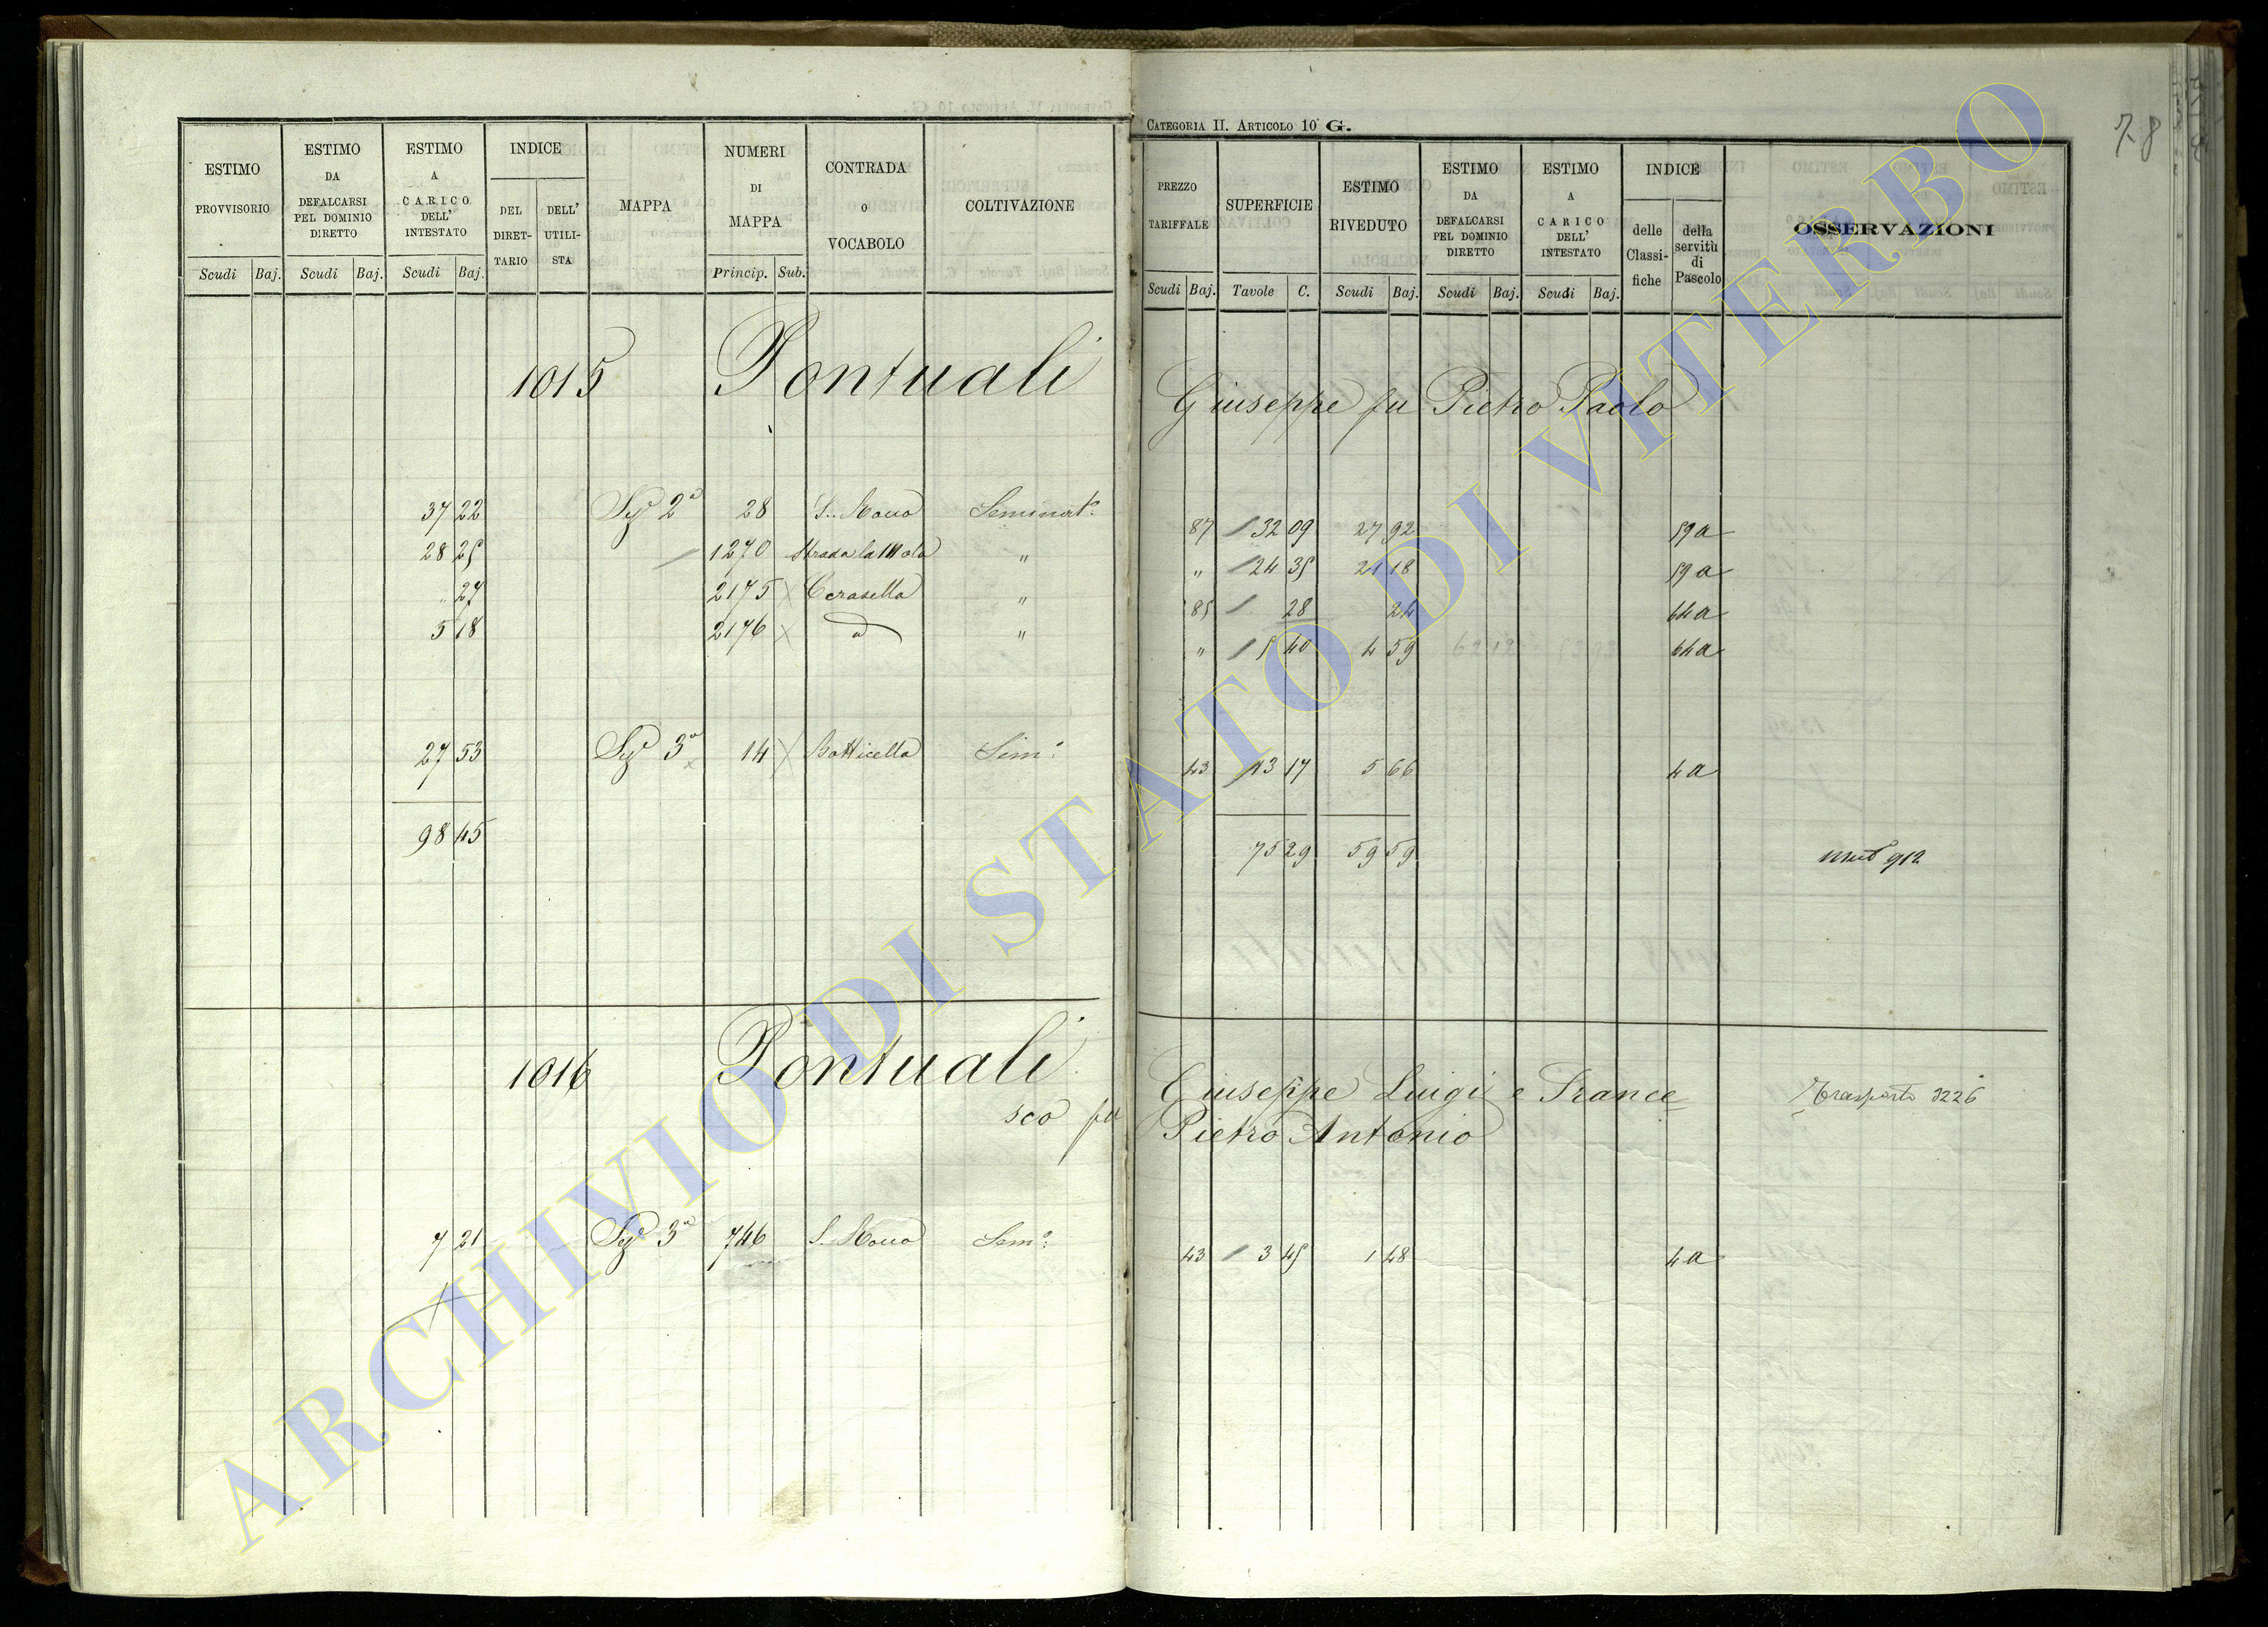 CATEGORIA II. ARTICOLO 10° G.
78
ESTIMO PROVVISORIO | ESTIMO DA DEFALCARSI PEL DOMINIO DIRETTO | ESTIMO A CARICO DELL' INTESTATO | INDICE | MAPPA | NUMERI DI MAPPA | CONTRADA O VOCABOLO | COLTIVAZIONE | PREZZO TARIFFALE | SUPERFICIE | ESTIMO RIVEDUTO | ESTIMO DA DEFALCARSI PEL DOMINIO DIRETTO | ESTIMO A CARICO DELL' INTESTATO | INDICE | OSSERVAZIONI
DEL DIRETTARIO | DELL' UTILISTA | delle Classifiche | della servitù di Pascolo
Scudi | Baj. | Scudi | Baj. | Scudi | Baj. | Princip. | Sub. | Scudi | Baj. | Tavole | C. | Scudi | Baj. | Scudi | Baj. | Scudi | Baj.
1015 Pontuali Giuseppe fu Pietro Paolo
37 22 Sez 2a 28 S. Rocco Seminato 87 32 09 27 92 59 a
28 25 1270 Strada la Mola " " 24 35 21 18 59 a
" 27 2175 Cerasella " 85 28 24 64 a
5 18 2176 d " " 5 40 4 59 64 a
27 53 Sez 3a 14 Botticella Sem° 43 13 17 5 66 4 a
98 45 75 29 59 59 912
1016 Pontuali Giuseppe Luigi e France=
sco fu Pietro Antonio Trasporto 3226
7 21 Sez 3a 746 S. Rocco Sem° 43 3 45 1 48 4 a
ARCHIVIO DI STATO DI VITERBO